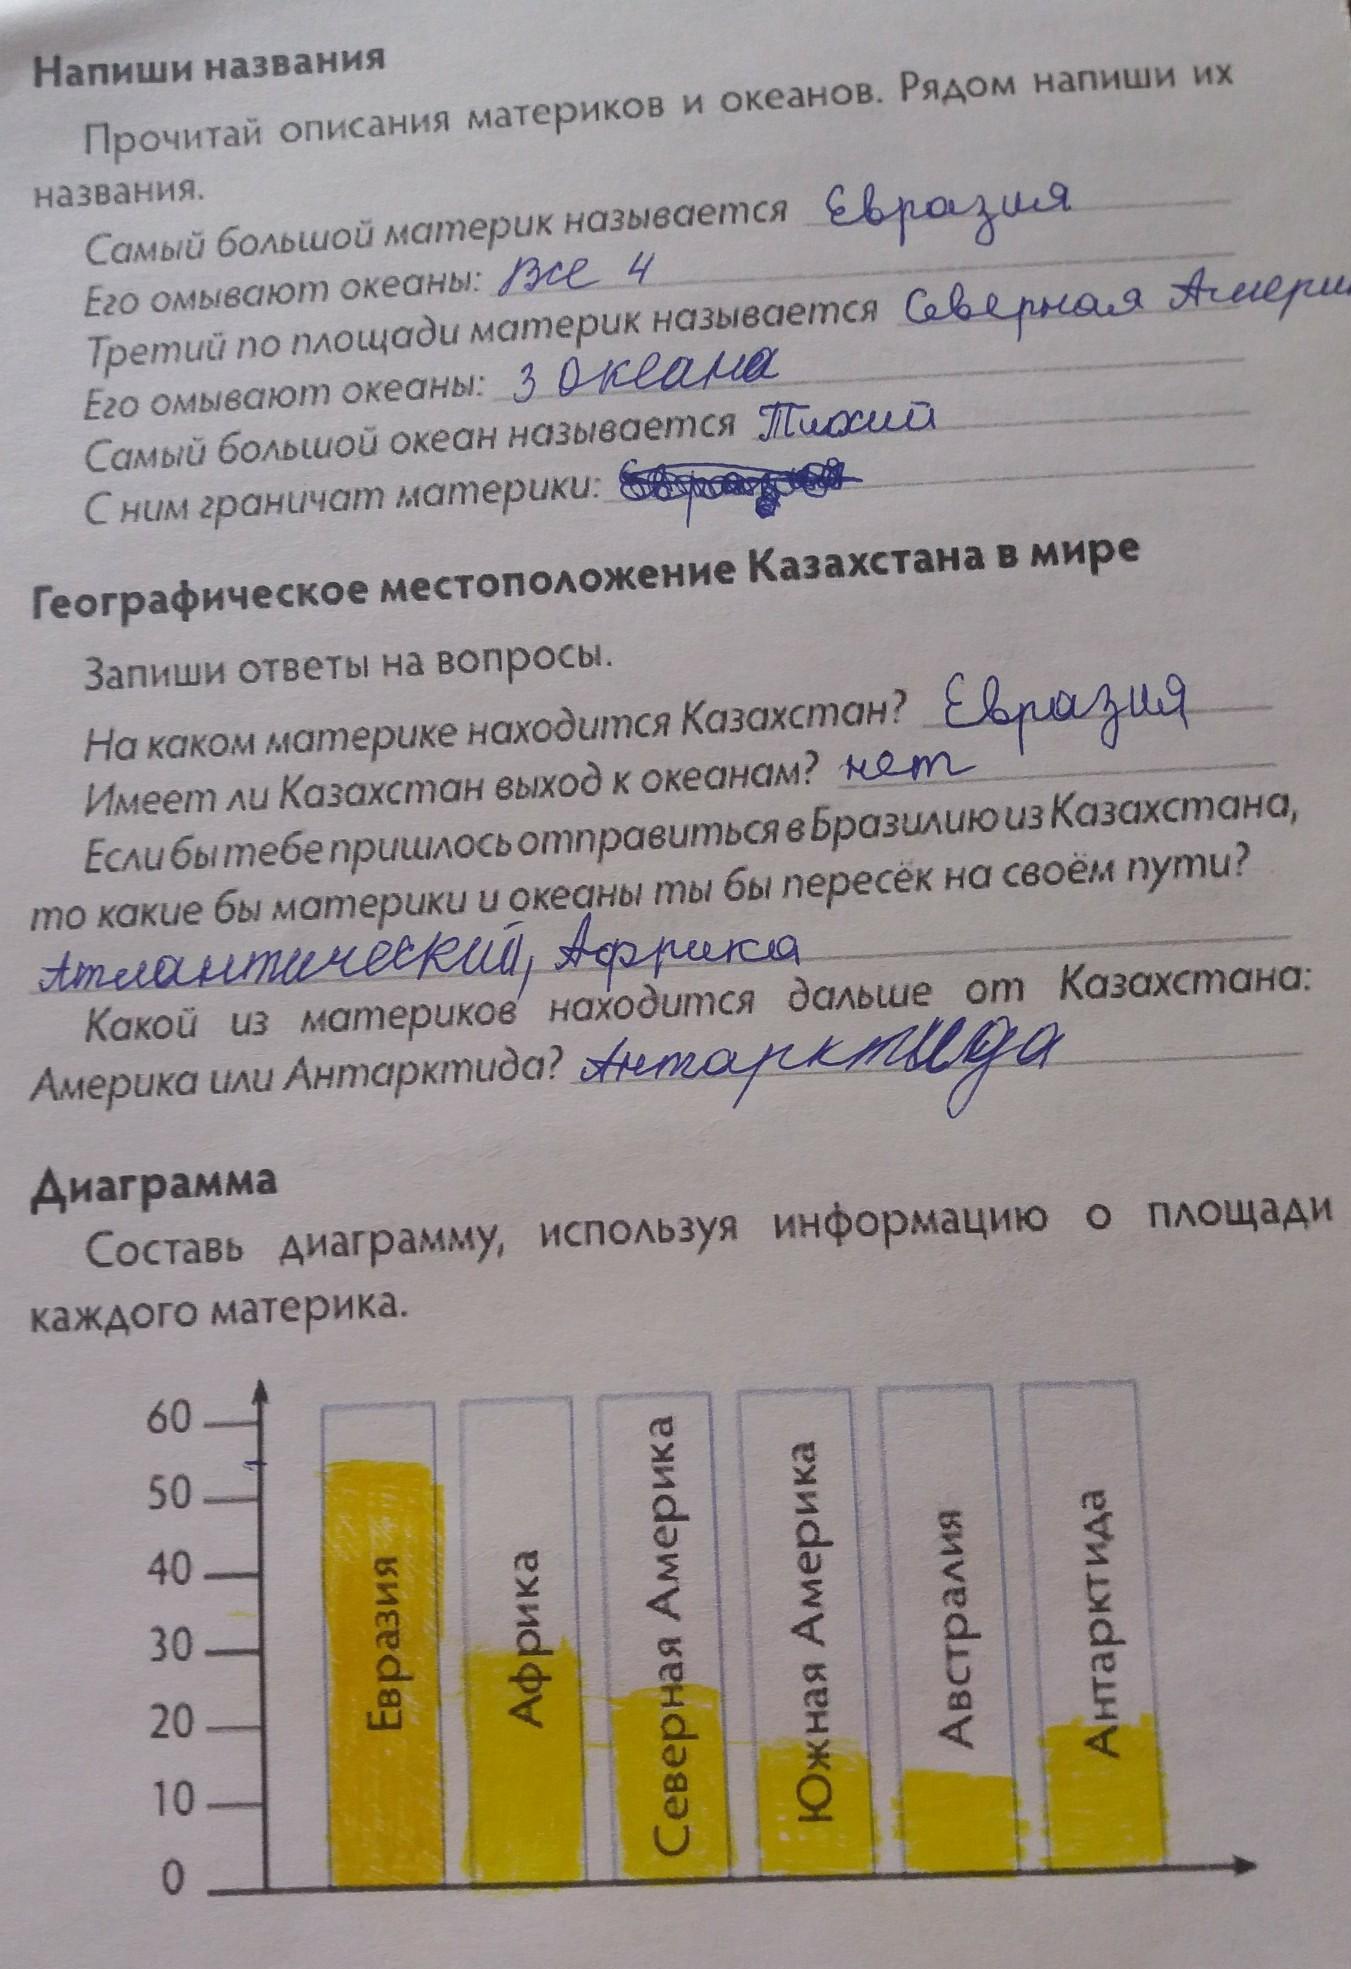 Напиши названия
Прочитай описания материков и океанов. Рядом напиши их
названия.
Самый большой материк называется Евразия
Его омывают океаны: Все 4
Третий по площади материк называется Северная Амери
Его омывают океаны: 3 океана
Самый большой океан называется Тихий
С ним граничат материки:
Географическое местоположение Казахстана в мире
Запиши ответы на вопросы.
На каком материке находится Казахстан? Евразия
Имеет ли Казахстан выход к океанам? нет
Если бы тебе пришлось отправиться в Бразилию из Казахстана,
то какие бы материки и океаны ты бы пересёк на своём пути?
Атлантический, Африка
Какой из материков находится дальше от Казахстана:
Америка или Антарктида? Антарктида
Диаграмма
Составь диаграмму, используя информацию о площади
каждого материка.
60
50
40
30
20
10
0
Евразия
Африка
Северная Америка
Южная Америка
Австралия
Антарктида